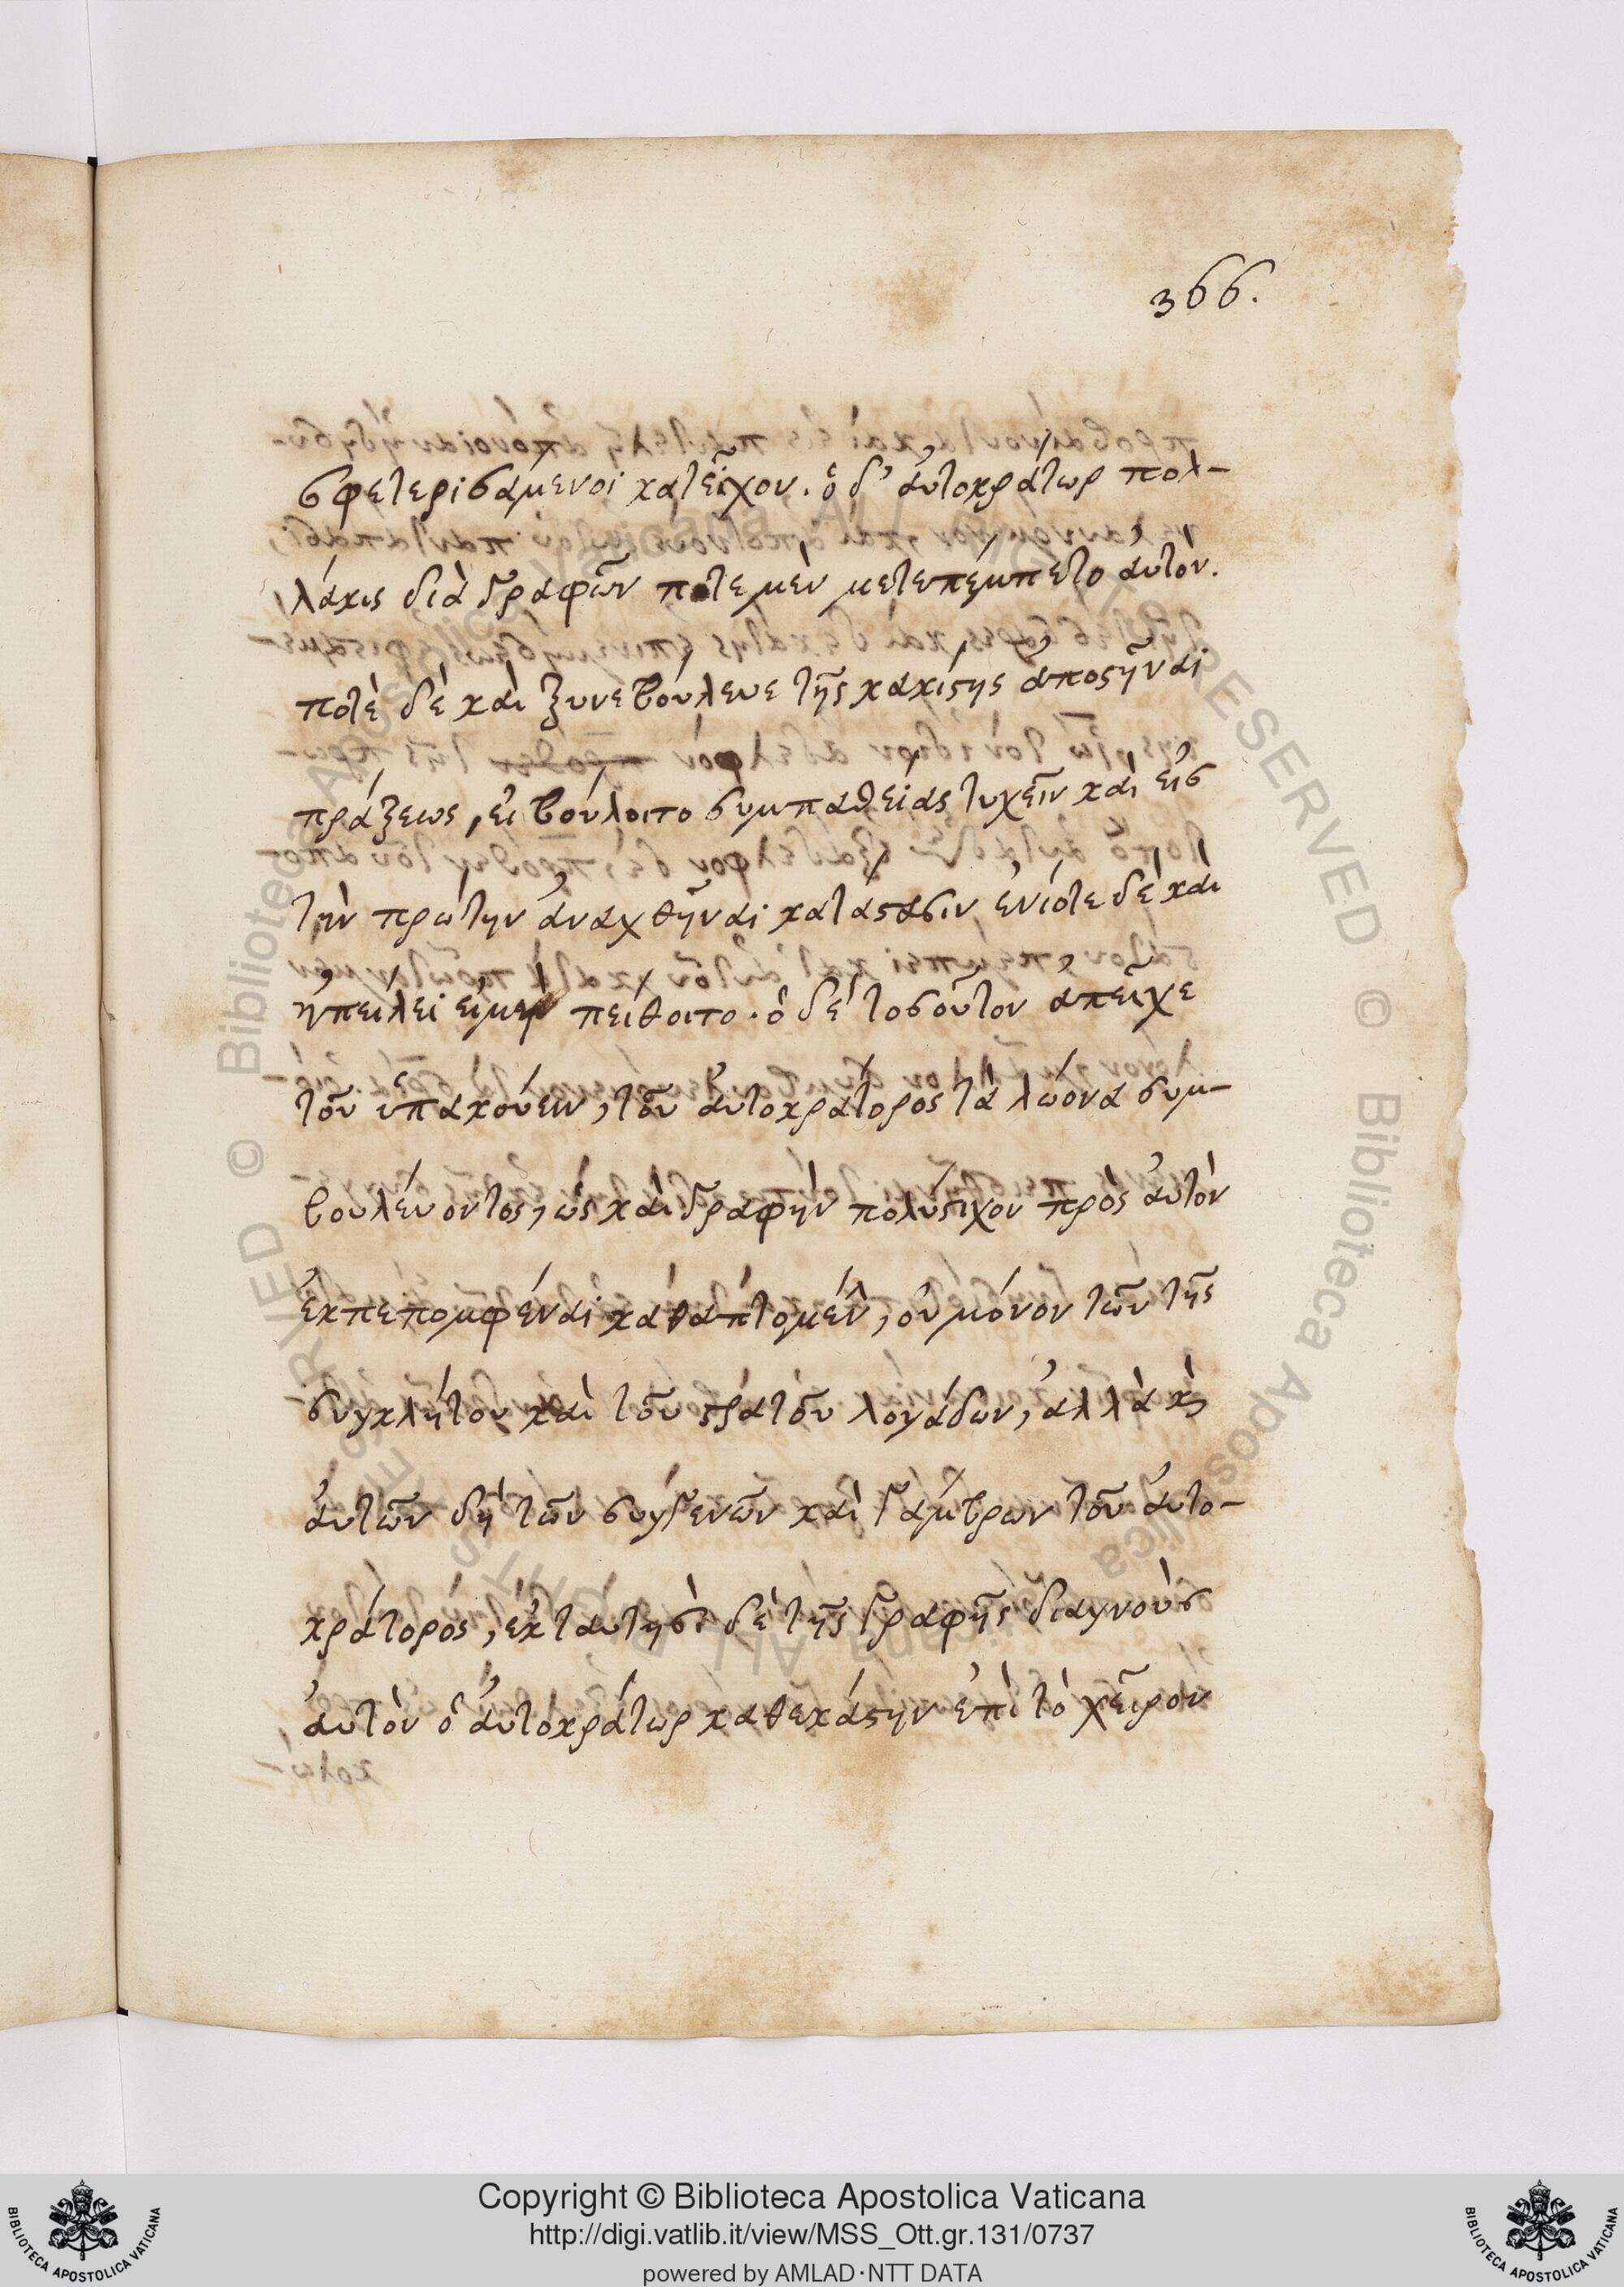 366.
σφετερισάμενοι κατεῖχον. ὁ δ' ἀυτοκράτωρ πολ-
λάκις διὰ γραφῶν ποτε μὲν μετεπέμπετο ἀυτόν.
ποτὲ δὲ καὶ ξυνεβούλευε τῆς κακίστης ἀποστῆναι
πράξεως, εἰ βούλοιτο συμπαθείας τυχεῖν καὶ εἰσ
τὴν πρώτην ἀναχθῆναι κατάστασιν ἐνίοτε δὲ και
ἠπείλει εἰ μὴ πείθοιτο. ὁ δὲ τοσοῦτον ἀπεῖχε
τοῦ ὑπακούειν, τοῦ ἀυτοκράτορος τὰ λώονα συμ-
βουλέυοντος, ὡς καὶ γραφὴν πολύστιχον πρὸς ἀυτὸν
ἐκπεπομφέναι καθαπτομέν, οὐ μόνον τῶν τῆς
συγκλήτου καὶ τοῦ στρατοῦ λογάδων, ἀλλὰ κ
ἀυτῶν δὴ τῶν συγγενῶν καὶ γάμβρων τοῦ ἀυτο-
κράτορος, ἐκ ταυτησὶ δὲ τῆς γραφῆς διαγνοὺσ
ἀυτὸν ὁ ἀυτοκράτωρ καθεκάστην ἐπὶ τὸ χεῖρον
Copyright © Biblioteca Apostolica Vaticana
http://digi.vatlib.it/view/MSS_Ott.gr.131/0737
powered by AMLAD·NTT DATA
BIBLIOTECA APOSTOLICA VATICANA
BIBLIOTECA APOSTOLICA VATICANA